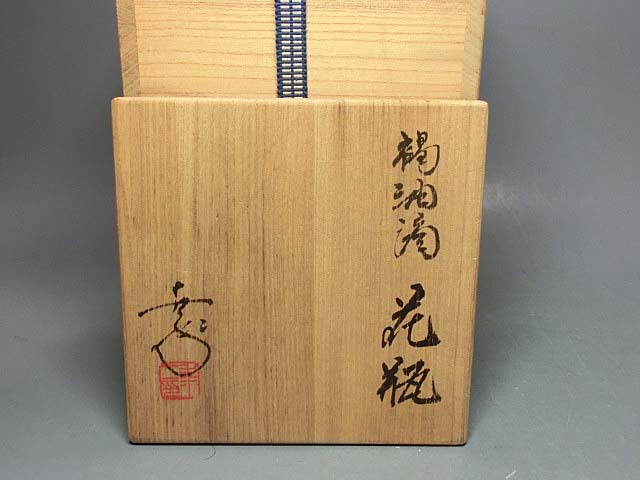 褐油滴 花瓶